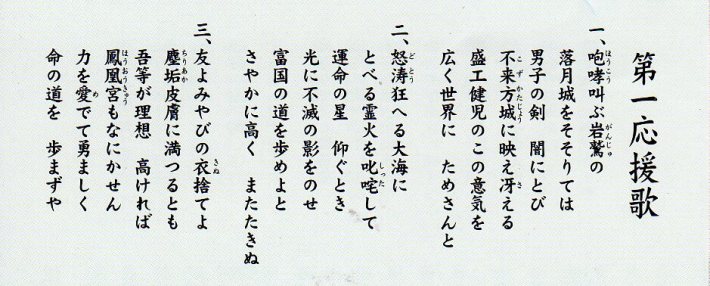 第一応援歌
一、咆哮叫ぶ岩鷲の
落月城をそそりては
男子の剣　闇にとび
不来方城に映え冴える
盛工健児のこの意気を
広く世界に　ためさんと
二、怒涛狂へる大海に
とべる霊火を叱咤して
運命の星　仰ぐとき
光に不滅の影をのせ
富国の道を歩めよと
さやかに高く　またたきぬ
三、友よみやびの衣捨てよ
塵垢皮膚に満つるとも
吾等が理想　高ければ
鳳凰宮もなにかせん
力を愛でて勇ましく
命の道を　歩まずや